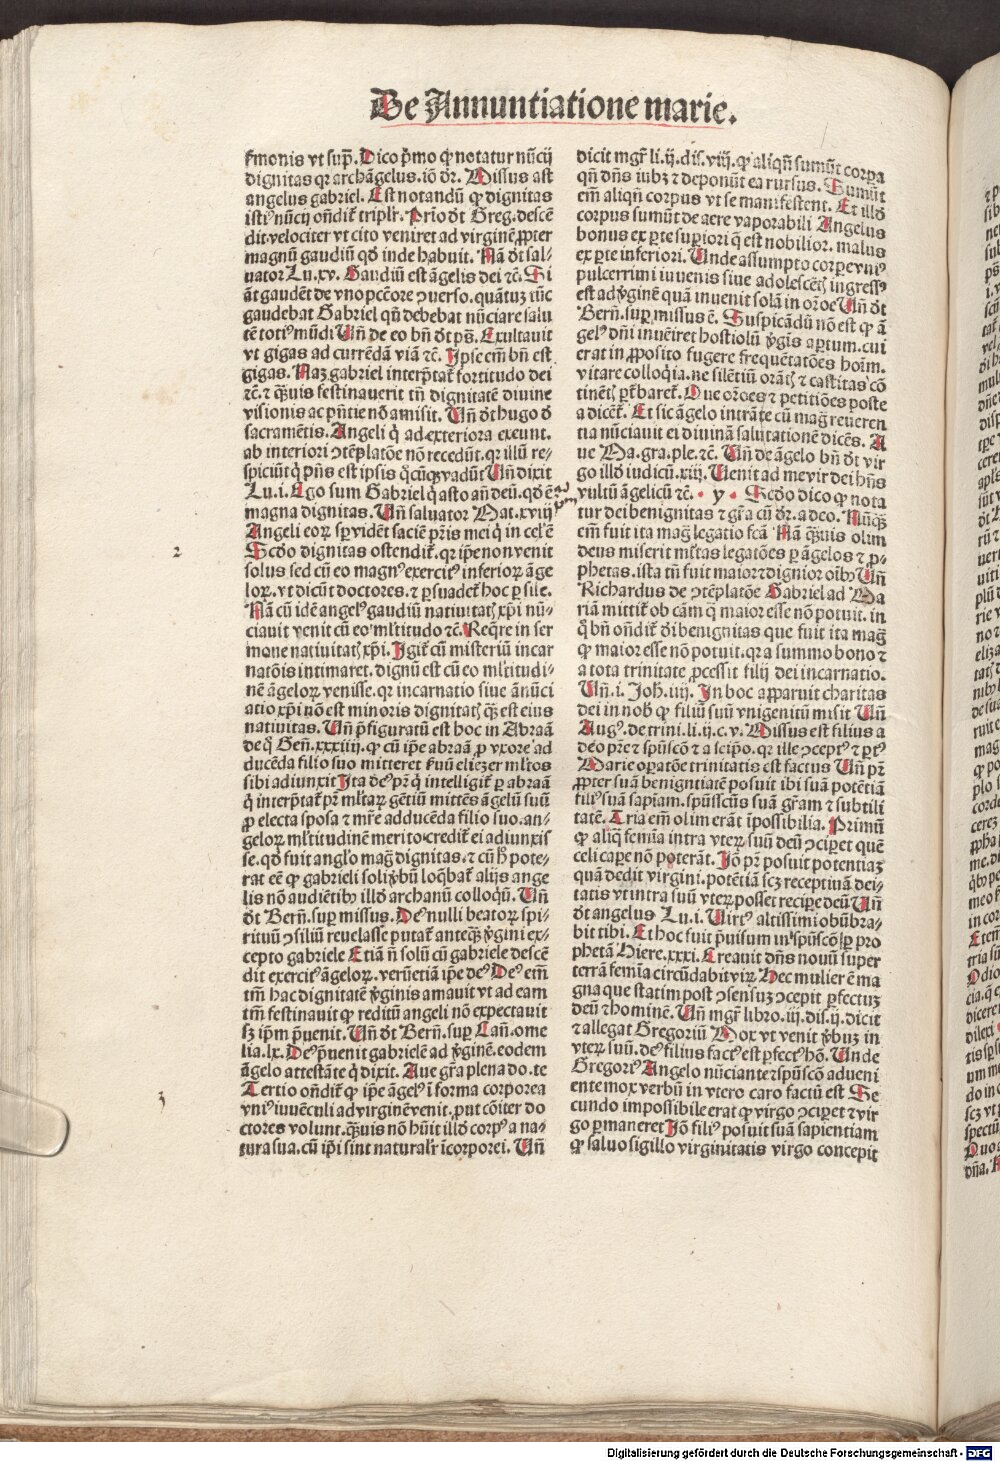 De Annuntiatione marie.
ẜmonis vt supͣ. Dico p̄mo ꝙ notatur nūcij
dignitas qꝛ archāgelus. iō dr̄. Missus ast
angelus gabriel. Est notandū ꝙ dignitas
isti⁹ nūcij on̄dit̄ triplr̄. Prio dt̄ Greg. descē
dit velociter vt cito veniret ad virginē ꝓpter
magnū gaudiū qd̄ inde habuit. Nā dt̄ sal-
uator Lu. xv. Gaudiū est āgelis dei ⁊c̄. Si
āt gaudēt de vno pctōre ꝯuerso. quātuꝫ tūc
gaudebat Gabriel qn̄ debebat nūciare salu
tē toti⁹ mūdi Un̄ de eo bn̄ dt̄ ps̄. Exultauit
vt gigas ad currēdā viā ⁊c̄. Ipse em̄ bn̄ est
gigas. Naꝫ gabriel interp̄tat̄ fortitudo dei
⁊c̄. ⁊ qͣuis festinauerit tn̄ dignitatē diuine
visionis ac pn̄tie nō amisit. Un̄ dt̄ hugo d̄
sacramētis. Angeli q̇ ad exteriora exeunt.
ab interiori ꝯtēplatōe nō recedūt. qꝛ illū re-
spiciūt q̇ pn̄s est ipsis q̇cūqꝫ vadūt Un̄ dixit
Lu. i. Ego sum Gabriel q̇ asto an̄ deū. qd̄ ē
magna dignitas. Un̄ saluator Mat. xviij
Angeli eoꝝ sp̄ vidēt faciē pr̄is mei q̇ in cel̄ ē
2
Scdō dignitas ostendit̄. qꝛ ip̄e non venit
solus sed cū eo magn⁹ exercit⁹ inferioꝝ āge
loꝝ. vt dicūt doctores. ⁊ ꝑsuadet̄ hoc ꝑ sile.
Nā cū idē angel⁹ gaudiū natiuitatꝭ xp̄i nū-
ciauit venit cū eo ml̄titudo ⁊c̄. Req̄re in ser
mone natiuitatꝭ xp̄i. Igit̄ cū misteriū incar
natōis intimaret. dignū est cū eo ml̄titudi-
nē āgeloꝝ venisse. qꝛ incarnatio siue ānūci
atio xp̄i nō est minoris dignitatꝭ qͣꝫ est eius
natiuitas. Un̄ p̄figuratū est hoc in Abraā
de q̇ Gen̄. xxxiiij. ꝙ cū ip̄e abraā ꝓ vxore ad
ducēda filio suo mitteret ẜuū eliezer ml̄tos
sibi adiunxit Ita de⁹ pr̄ q̇ intelligit̄ ꝑ abraā
q̇ interp̄tat̄ pr̄ ml̄taꝝ gētiū mittēs āgelū suū
ꝓ electa sposa ⁊ mr̄e adducēda filio suo. an-
geloꝝ ml̄titudinē merito credit̄ ei adiunxis
se. qd̄ fuit angl̄o mag̅ dignitas. ⁊ cū h̄ pote-
rat eē ꝙ gabrieli soli ꝟbū loq̄bat̄ alijs ange
lis nō audiētibꝫ illd̄ archanū colloq̇ū. Un̄
dt̄ Bern̄. suꝑ missus. De⁹ nulli beatoꝝ spi-
rituū ꝯsiliū reuelasse putat̄ anteqͣꝫ ꝟgini ex-
cepto gabriele Etiā n̄ solū cū gabriele descē
dit exercit⁹ āgeloꝝ. veꝝetiā ip̄e de⁹ De⁹ em̄
tm̄ hac dignitatē ꝟginis amauit vt ad eam
tm̄ festinauit ꝙ reditū angeli nō expectauit
sꝫ ip̄m p̄uenit. Un̄ dt̄ Bern̄. suꝑ Can̄. ome
lia. lx. De⁹ p̄uenit gabrielē ad ꝟginē. eodem
āgelo attestāte q̇ dixit. Aue gr̄a plena do. te
3
Tertio on̄dit̄ ꝙ ip̄e āgel⁹ ī forma corporea
vni⁹ iuuēculi ad virginē venit. ꝓut cōiter do
ctores volunt. qͣuis nō hūit illd̄ corp⁹ a na-
tura sua. cū ip̄i sint naturalr̄ īcorporei. Un̄
dicit mgr̄ li. ij. dis. viij. ꝙ aliqn̄ sumūt corpa
qn̄ dn̄s iubꝫ ⁊ deponūt ea rursus. Sumūt
em̄ aliqn̄ corpus vt se manifestent. Et illd̄
corpus sumūt de aere vaporabili Angelus
bonus ex ꝑte superiori q̄ est nobilior. malus
ex ꝑte inferiori. Unde assumpto corꝑe vni⁹
pulcerrimi iuuenis siue adolescētꝭ ingress⁹
est ad ꝟginē quā inuenit solā in orōe Un̄ dt̄
Bern̄. suꝑ missus ē. Suspicādū nō est ꝙ ā
gel⁹ dn̄i inuēiret hostiolū ꝟgīs aꝑtum. cui
erat in ꝓposito fugere frequētatōes hoīm.
vitare colloq̇a. ne silētiū orātꝭ ⁊ castitas cō
tinētꝭ ꝑt̄baret̄. Que orōes ⁊ petitiōes poste
a dicēt̄. Et sic āgelo intrāte cū mag̅ reueren
tia nūciauit ei diuinā salutationē dicēs. A
ue Ma. gra. ple. ⁊c̄. Un̄ de āgelo bn̄ dt̄ vir
go illd̄ iudicū. xiij. Uenit ad me vir dei hn̄s
vultū āgelicū ⁊c̄. • y • Scdō dico ꝙ nota
tur dei benignitas ⁊ gr̄a cū dr̄. a deo. Nūqͣꝫ
em̄ fuit ita mag̅ legatio fcā Nā qͣuis olim
deus miserit ml̄tas legatōes ꝑ āgelos ⁊ ꝓ-
phetas. ista tn̄ fuit maior ⁊ dignior oībꝫ Un̄
Richardus de ꝯtēplatōe Gabriel ad Ma
riā mittit̄ ob cām qͣ maior esse nō potuit. in
q̇ bn̄ on̄dit̄ dei benignitas que fuit ita mag̅
ꝙ maior esse nō potuit. qꝛ a summo bono ⁊
a tota trinitate ꝓcessit filij dei incarnatio.
Un̄. i. Joh̄. iiij. In hoc apparuit charitas
dei in nob̄ ꝙ filiū suū vnigenitū misit Un̄
Aug⁹. de trini. li. ij. c. v. Missus est filius a
deo pr̄e ⁊ sp̄uscō ⁊ a seip̄o. qꝛ ille ꝯcept⁹ ⁊ ꝑt⁹
Marie oꝑatōe trinitatis est factus Un̄ pr̄
ꝓpter suā benigntiatē posuit ibi suā potētiā
fili⁹ suā sapiam. sp̄usscūs suā gr̄am ⁊ subtili
tatē. Tria em̄ olim erāt īpossibilia. Primū
ꝙ aliq̄ femīa intra vteꝝ suū deū ꝯciperet quē
celi capere nō poterāt. Iō pr̄ posuit potentiaꝫ
quā dedit virgini. potētiā scꝫ receptiuā dei-
tatis vt intra suū vteꝝ posset reciꝑe deū Un̄
dt̄ angelus Lu. i. Uirt⁹ altissimi obūbra-
bit tibi. Et hoc fuit p̄uisum in sp̄uscō ꝑ pro
phetā Hiere. xxxi. Creauit dn̄s nouū super
terrā femīa circūdabit viꝝ. Hec mulier ē ma
gna que statim post ꝯsensuꝫ ꝯcepit ꝑfectuꝫ
deū ⁊ hominē. Un̄ mgr̄ libro. iij. dis. ij. dicit
⁊ allegat Gregoriū Mox vt venit ꝟbuꝫ in
vteꝝ suū. de⁹ filius fact⁹ est ꝑfect⁹ hō. Unde
Gregori⁹ Angelo nūciante ⁊ sp̄uscō adueni
ente mox verbū in vtero caro factū est Se
cundo impossibile erat ꝙ virgo ꝯciꝑet ⁊ vir
go ꝑmaneret Iō fili⁹ posuit suā sapientiam
ꝙ saluo sigillo virginitatis virgo concepit
Digitalisierung gefördert durch die Deutsche Forschungsgemeinschaft - DFG